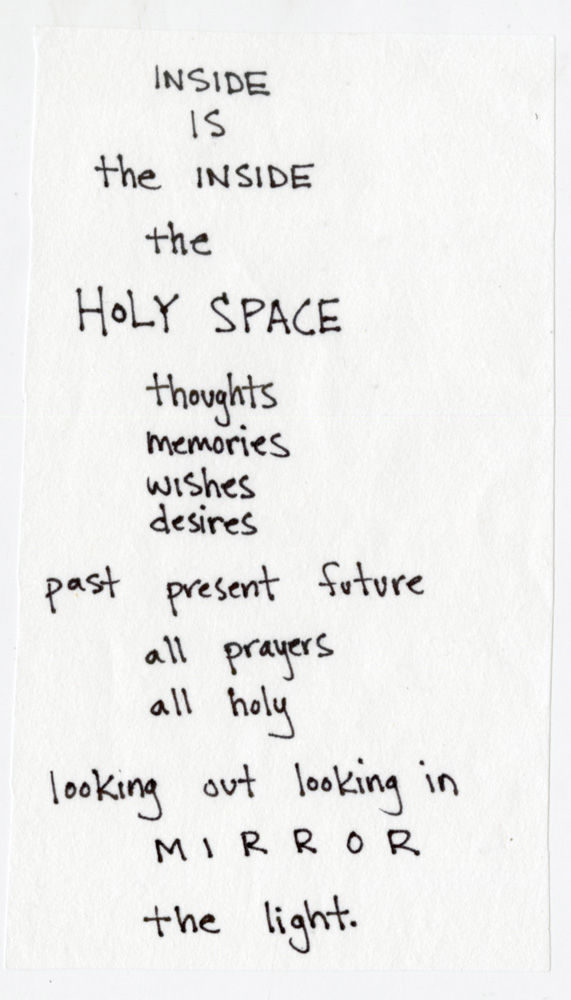 INSIDE
IS
the INSIDE
the
HOLY SPACE
thoughts
memories
wishes
desires
past present future
all prayers
all holy
looking out looking in
MIRROR
the light.